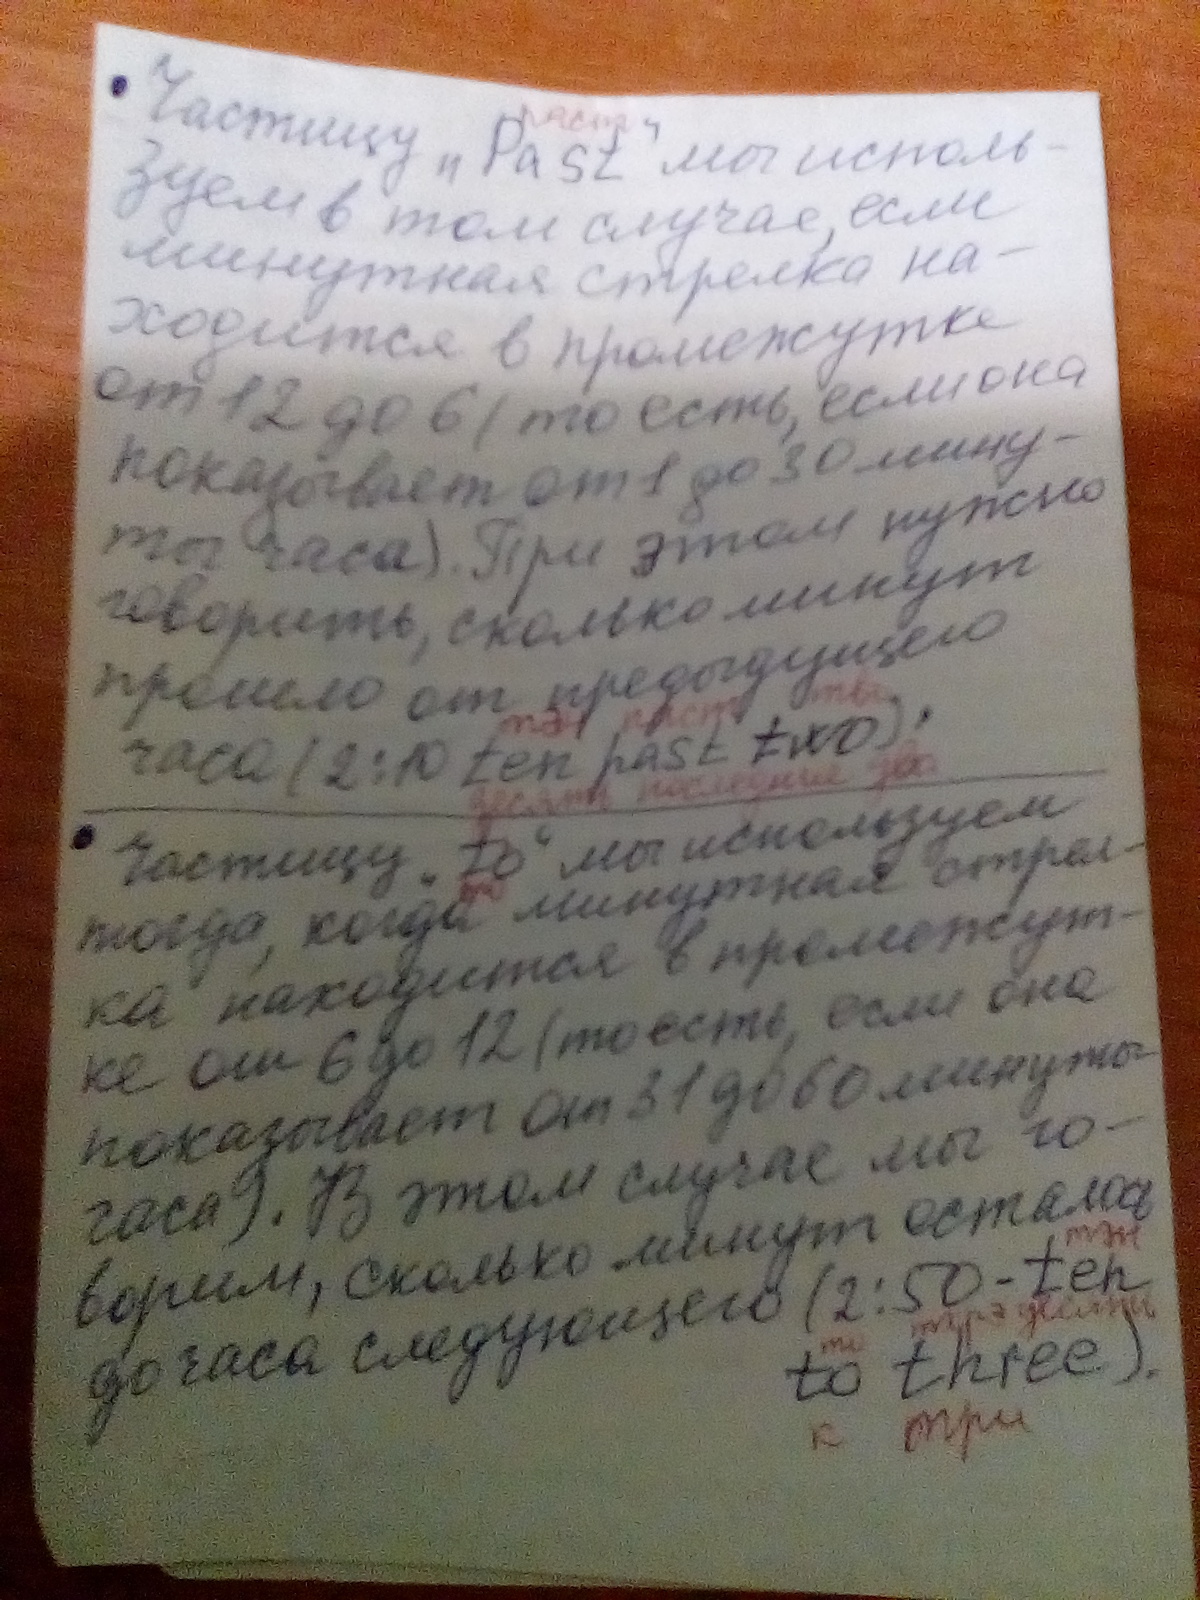 • Частицу „Past“ мы исполь-
паст
зуем в том случае, если
минутная стрелка на-
ходится в промежутке
от 12 до 6 (то есть, если она
показывает от 1 до 30 мину-
ты часа). При этом нужно
говорить, сколько минут
прошло от предыдущего
тэн паст тво
часа (2:10 ten past two);
десять последние два
• Частицу „to“ мы используем
то
тогда, когда минутная стрел-
ка находится в промежут-
ке от 6 до 12 (то есть, если она
показывает от 31 до 60 минуты
часа). В этом случае мы го-
ворим, сколько минут осталось
тэн
до часа следующего (2:50 - ten
то трэ десять
to three).
к три